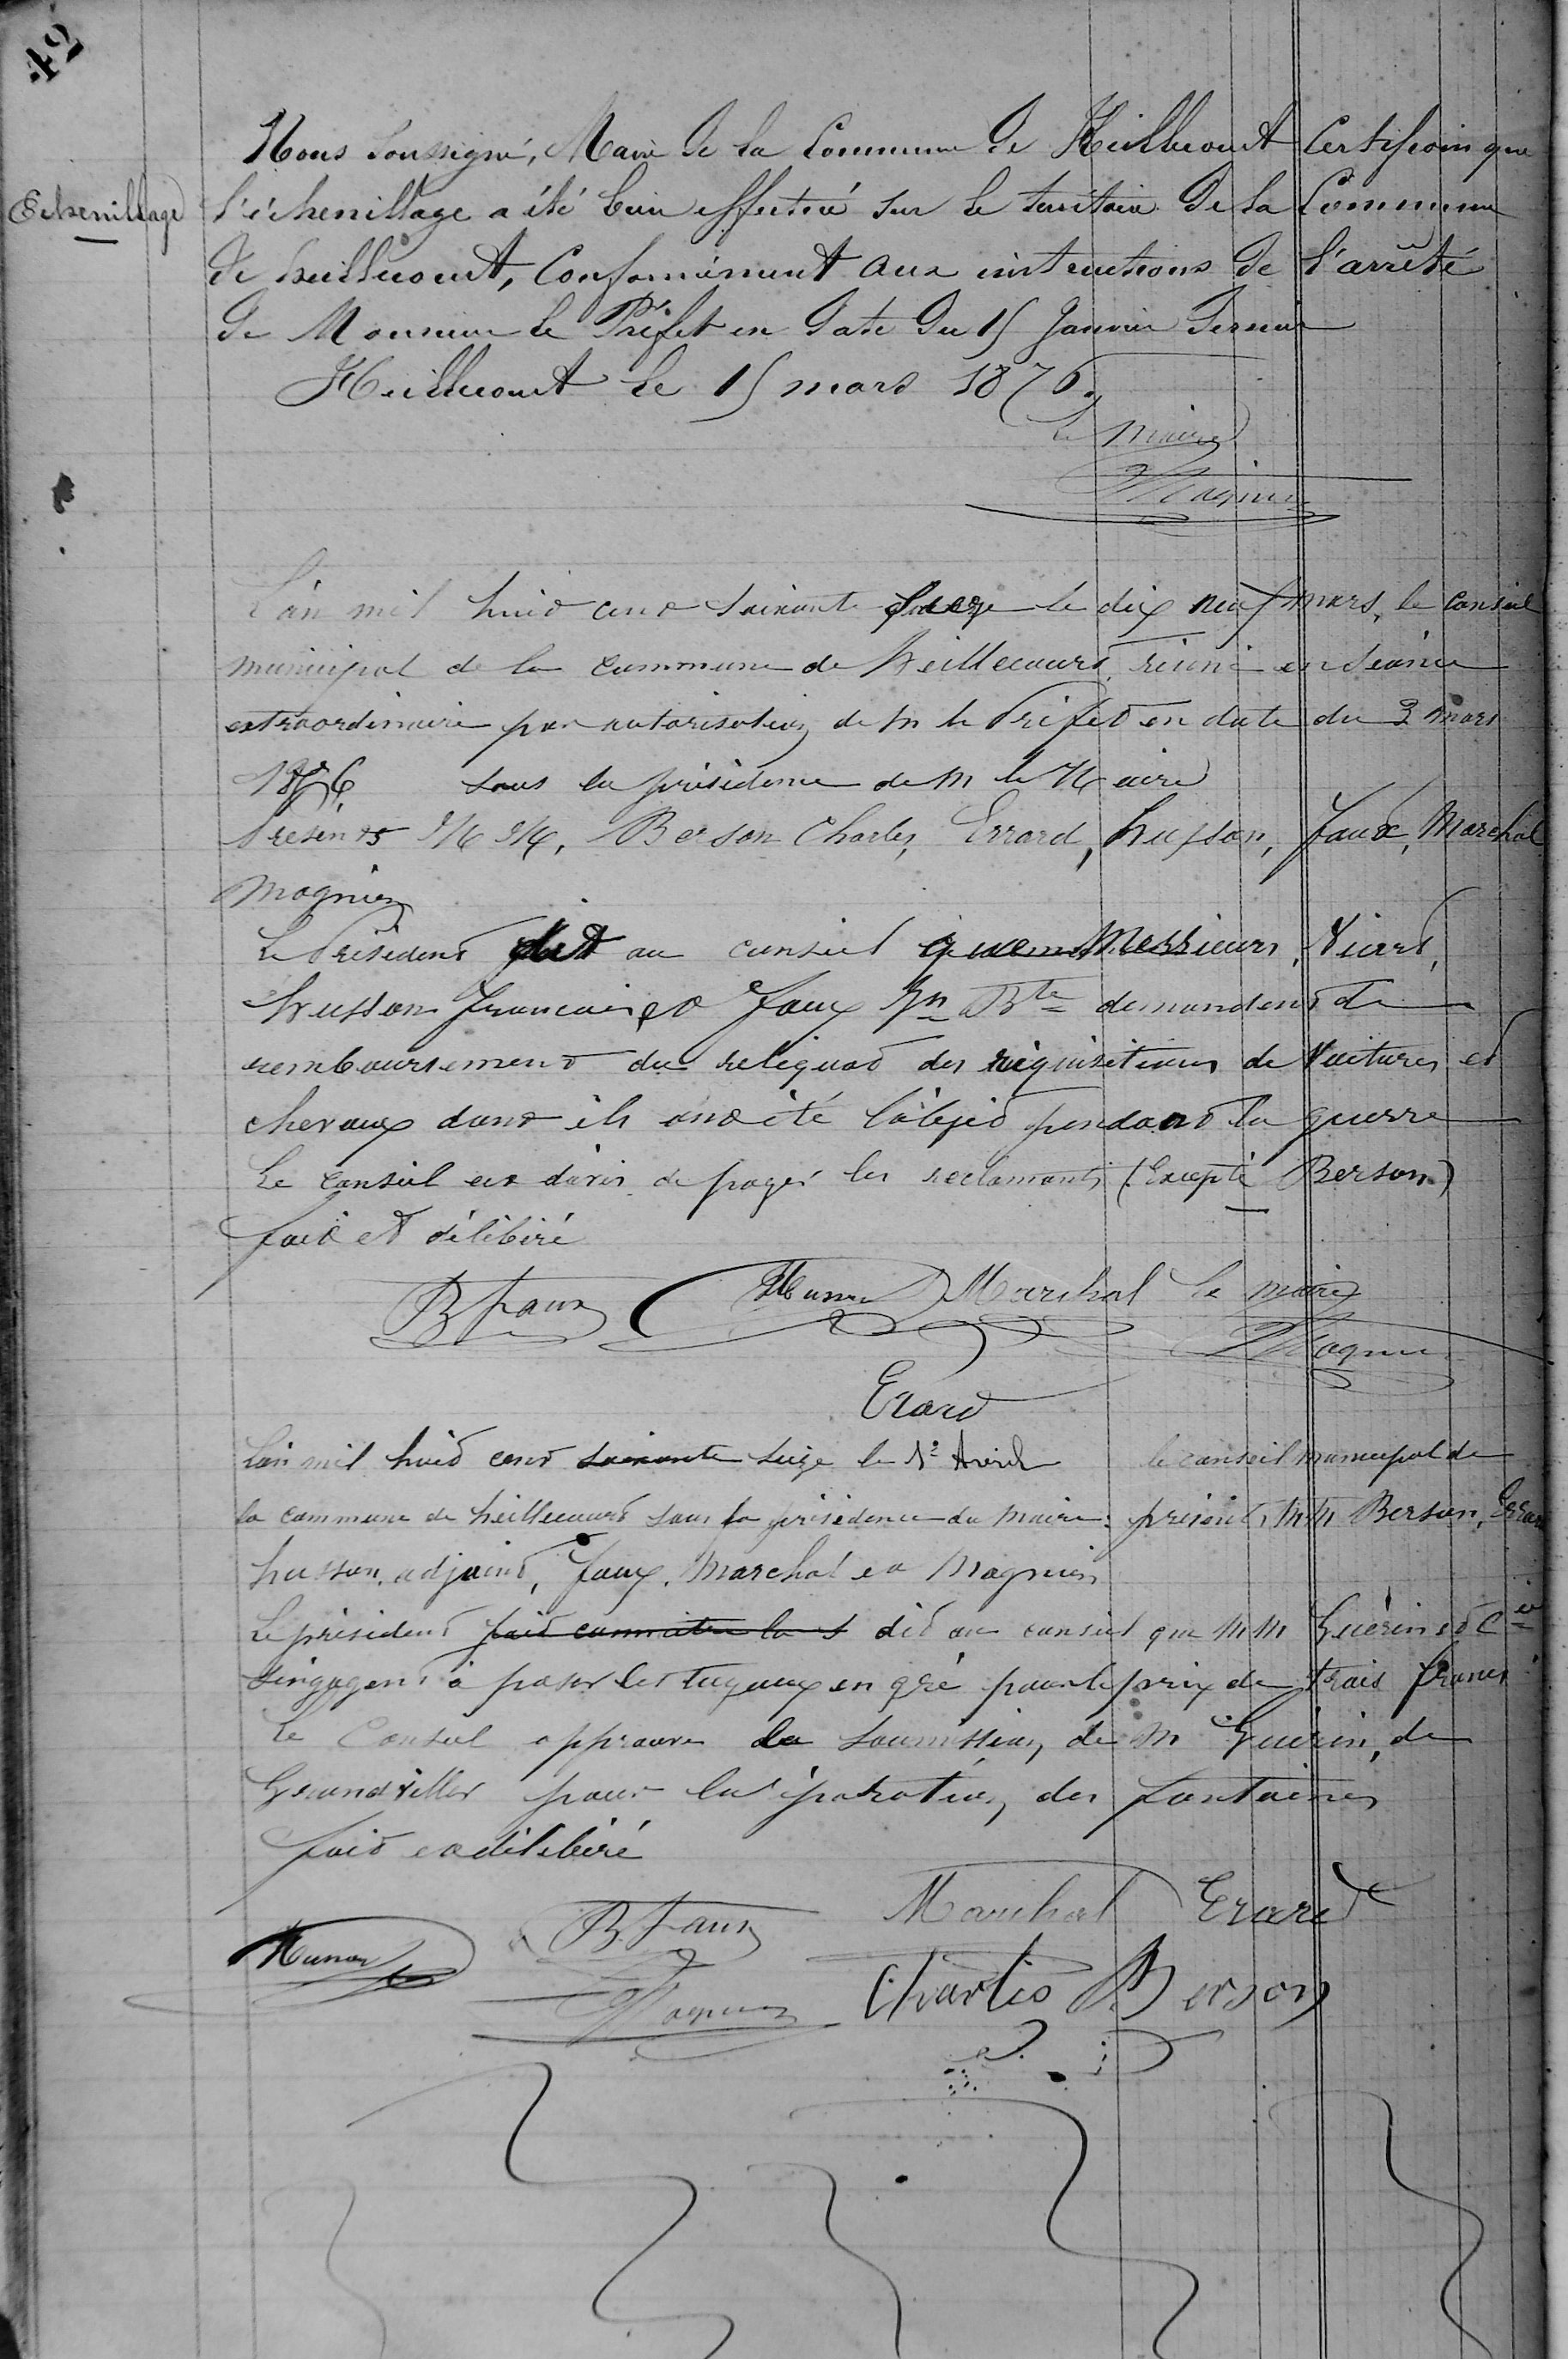 42
Nous Soussigné, Maire de la Commune de Heillecourt Certifions que
Echenillage
l'échenillage a été bien effectué sur le territoire de la Commune
de heillecourt, Conformément aux instructions de l'arrêté
de Monsieur le Préfet en date du 15 Janvier dernier
Heillecourt le 15 mars 1876.
Le Maire
Magnien
L'an mil huit cent soixante seize le dix neuf mars, le conseil
municipal de la commune de heillecourt réuni en séance
extraordinaire par autorisation de M le Préfet en date du 3 mars
1876, sous la présidence de M le Maire
Présents MM, Berson Charles, Errard, husson, faux, Marchal
Magnien
Le Président dit au conseil que Messieurs, Viard,
husson francois et faux Jn Bte demandent le
remboursement du reliquat des réquisitions de Voitures et
chevaux dont ils ont été l'objet pendant la guerre
Le conseil est d'avis de payer les reclamants (Excepté Berson)
fait et délibéré
B faux Husson Marchal Le maire
Magnien
Erard
L'an mil huit cent soixante seize le 1er Avril le conseil municipal de
la commune de heillecourt sous la présidence du Maire. présents, MM Berson,
husson adjoint, faux, Marchal et Magnien
Le président fait connaitre la s dit au conseil que MM Guérin et Cie
s'engagent à poser les tuyaux en gré pour le prix de trois francs
Le Conseil approuve la soumission de M Guérin, de
Grandviller pour la réparation des fontaines
fait et délibéré
Marchal Erard
Husson B. faux
Magnien Charles Berson